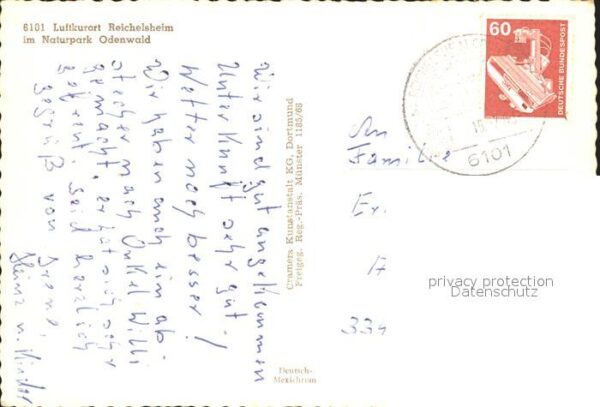 6101 Luftkurort Reichelsheim
im Naturpark Odenwald
Wir sind gut angekommen
Unterkunft sehr gut.
Wetter noch besser!
Wir haben auch ein ab
stecher nach Onkel Willi
gemacht, er hat sich sehr
gefreut. Seid herzlich
gegrüßt von
Heinz u. Kinder
Cramers Kunstanstalt KG, Dortmund
Freigeg. Reg.-Präs. Münster 1185/68
Deutsch-
Mexichrom
60
DEUTSCHE BUNDESPOST
6101
An
Familie
privacy protection
Datenschutz
334